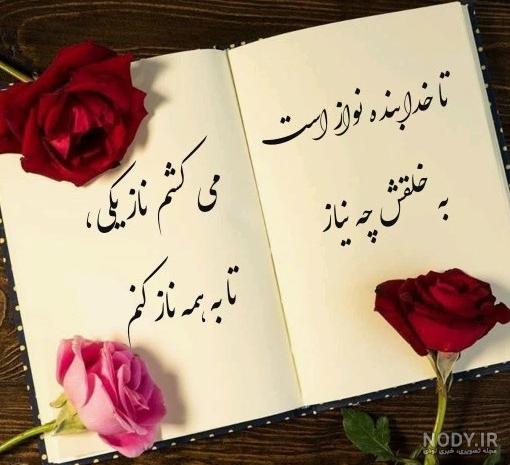 تا خدا بنده نواز است
به خلقش چه نیاز
می کشم ناز یکی،
تا به همه ناز کنم
NODY.IR
مجله تصویری، خبری نودی